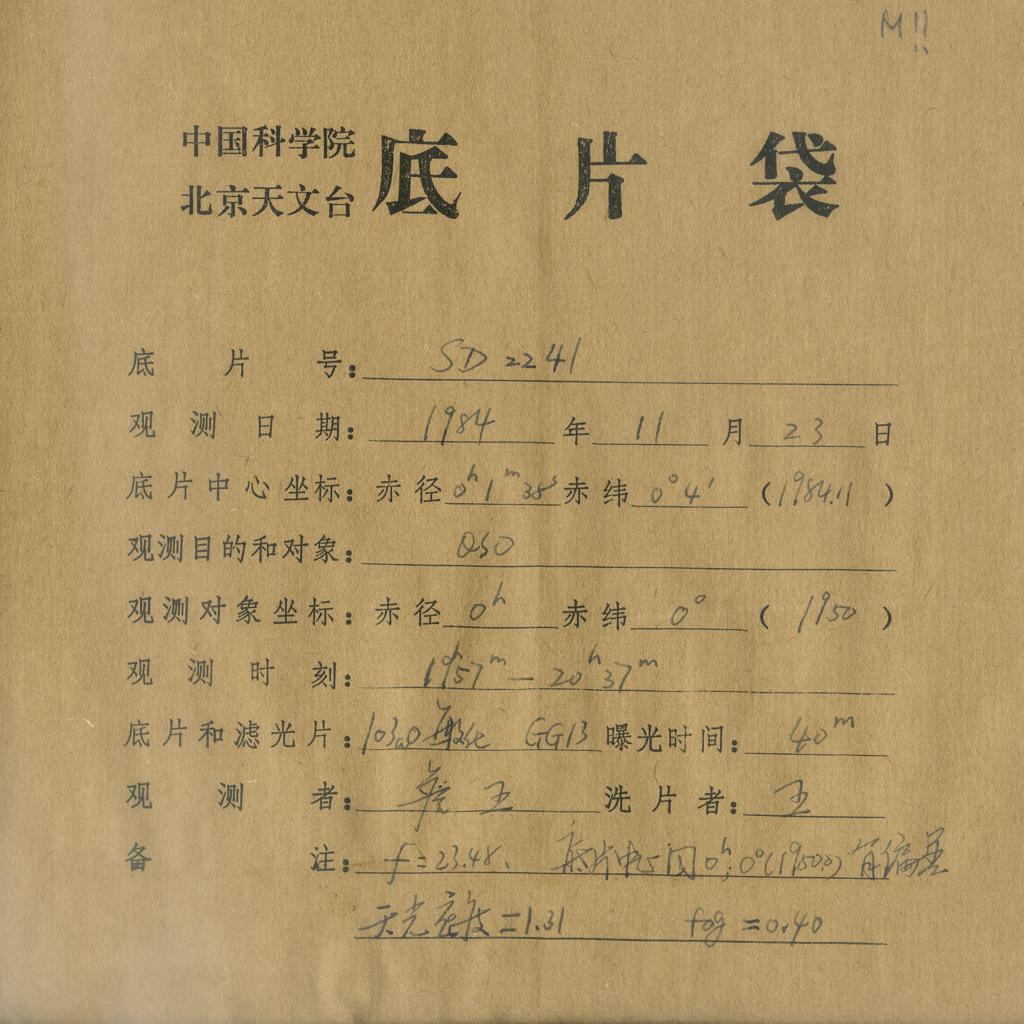 M!!
中国科学院
北京天文台
底片袋
底片号: SD 2241
观测日期: 1984 年 11 月 23 日
底片中心坐标: 赤径 0ʰ1ᵐ38ˢ 赤纬 0°4′ (1984.11)
观测目的和对象: QSO
观测对象坐标: 赤径 0ʰ 赤纬 0° (1950)
观测时刻: 19ʰ57ᵐ — 20ʰ37ᵐ
底片和滤光片: 103aO 敏化 GG13 曝光时间: 40ᵐ
观测者: 王 洗片者: 王
备注: f=23.48. 底片中心同0ʰ,0°(1950.0)有偏差
天光密度=1.31 fog=0.40